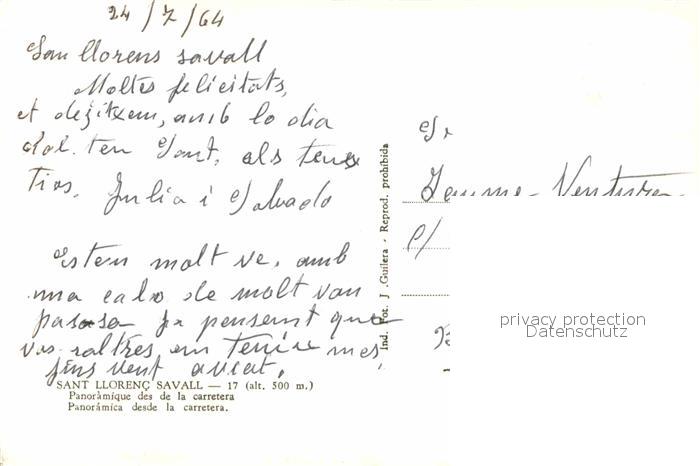 24/7/64
San llorens savall
Moltes felicitats,
et dejitxem, amb lo dia
dal teu Sant, als teus
Tios, Julia i Salvado
Estem molt ve, amb
una calo de molt
pasa ja pensem que
vos-raltres em teniu mes,
fins vent aviat.
SANT LLORENÇ SAVALL — 17 (alt. 500 m.)
Panoràmique des de la carretera
Panorámica desde la carretera.
Ind. Fot. J. Guilera - Reprod. prohibida
Sr
Jaume Ventura
C/
privacy protection
Datenschutz